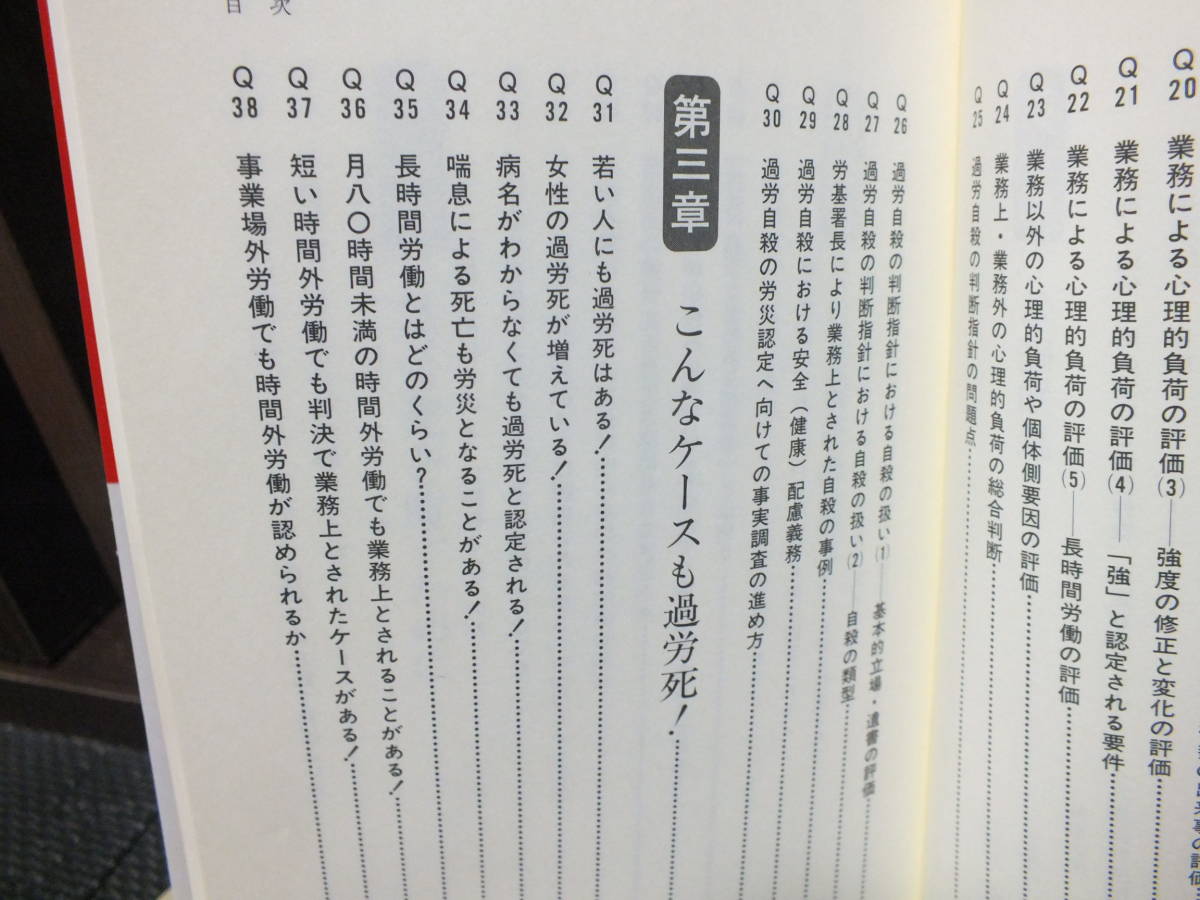 Q20 業務による心理的負荷の評価(3)――強度の修正と変化の評価
Q21 業務による心理的負荷の評価(4)――「強」と認定される要件
Q22 業務による心理的負荷の評価(5)――長時間労働の評価
Q23 業務以外の心理的負荷や個体側要因の評価
Q24 業務上・業務外の心理的負荷の総合判断
Q25 過労自殺の判断指針の問題点
目次
Q26 過労自殺の判断指針における自殺の扱い(1)――基本的立場・遺書の評価
Q27 過労自殺の判断指針における自殺の扱い(2)――自殺の類型
Q28 労基署長により業務上とされた自殺の事例
Q29 過労自殺における安全(健康)配慮義務
Q30 過労自殺の労災認定へ向けての事実調査の進め方
第三章 こんなケースも過労死!
Q31 若い人にも過労死はある!
Q32 女性の過労死が増えている!
Q33 病名がわからなくても過労死と認定される!
Q34 喘息による死亡も労災となることがある!
Q35 長時間労働とはどのくらい?
Q36 月八〇時間未満の時間外労働でも業務上とされることがある!
Q37 短い時間外労働でも判決で業務上とされたケースがある!
Q38 事業場外労働でも時間外労働が認められるか